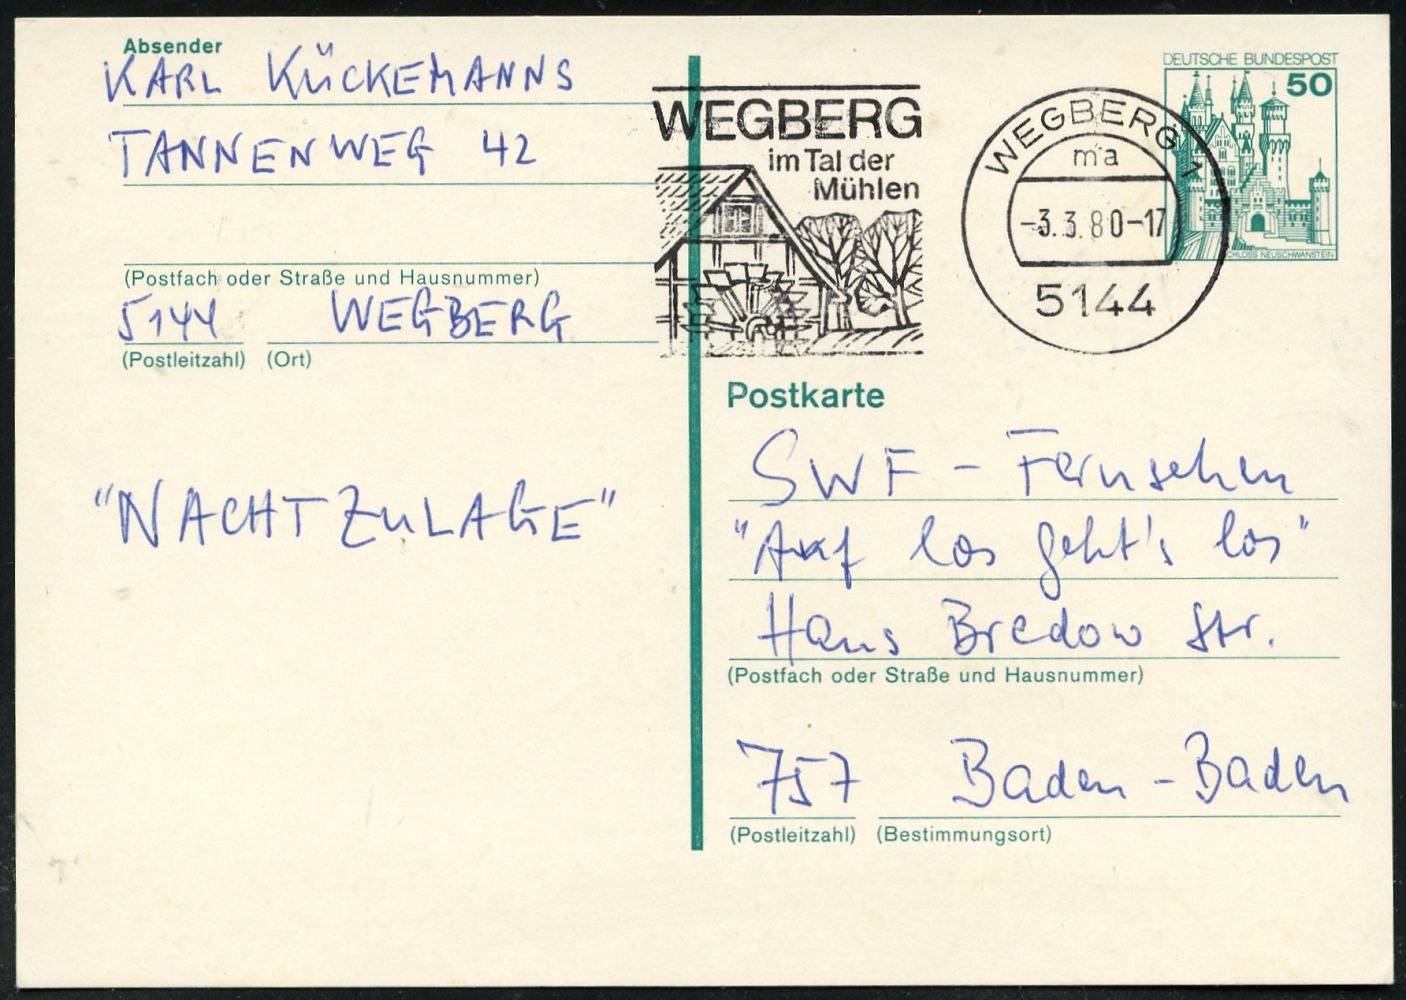 Absender
KARL KÜCKEMANNS
TANNENWEG 42
(Postfach oder Straße und Hausnummer)
5144 WEGBERG
(Postleitzahl) (Ort)
"NACHTZULAGE"
WEGBERG
im Tal der
Mühlen
WEGBERG 1
ma
-3.3.80-17
5144
DEUTSCHE BUNDESPOST
50
SCHLOSS NEUSCHWANSTEIN
Postkarte
SWF - Fernsehen
"Auf los geht's los"
Hans Bredow Str.
(Postfach oder Straße und Hausnummer)
757 Baden-Baden
(Postleitzahl) (Bestimmungsort)